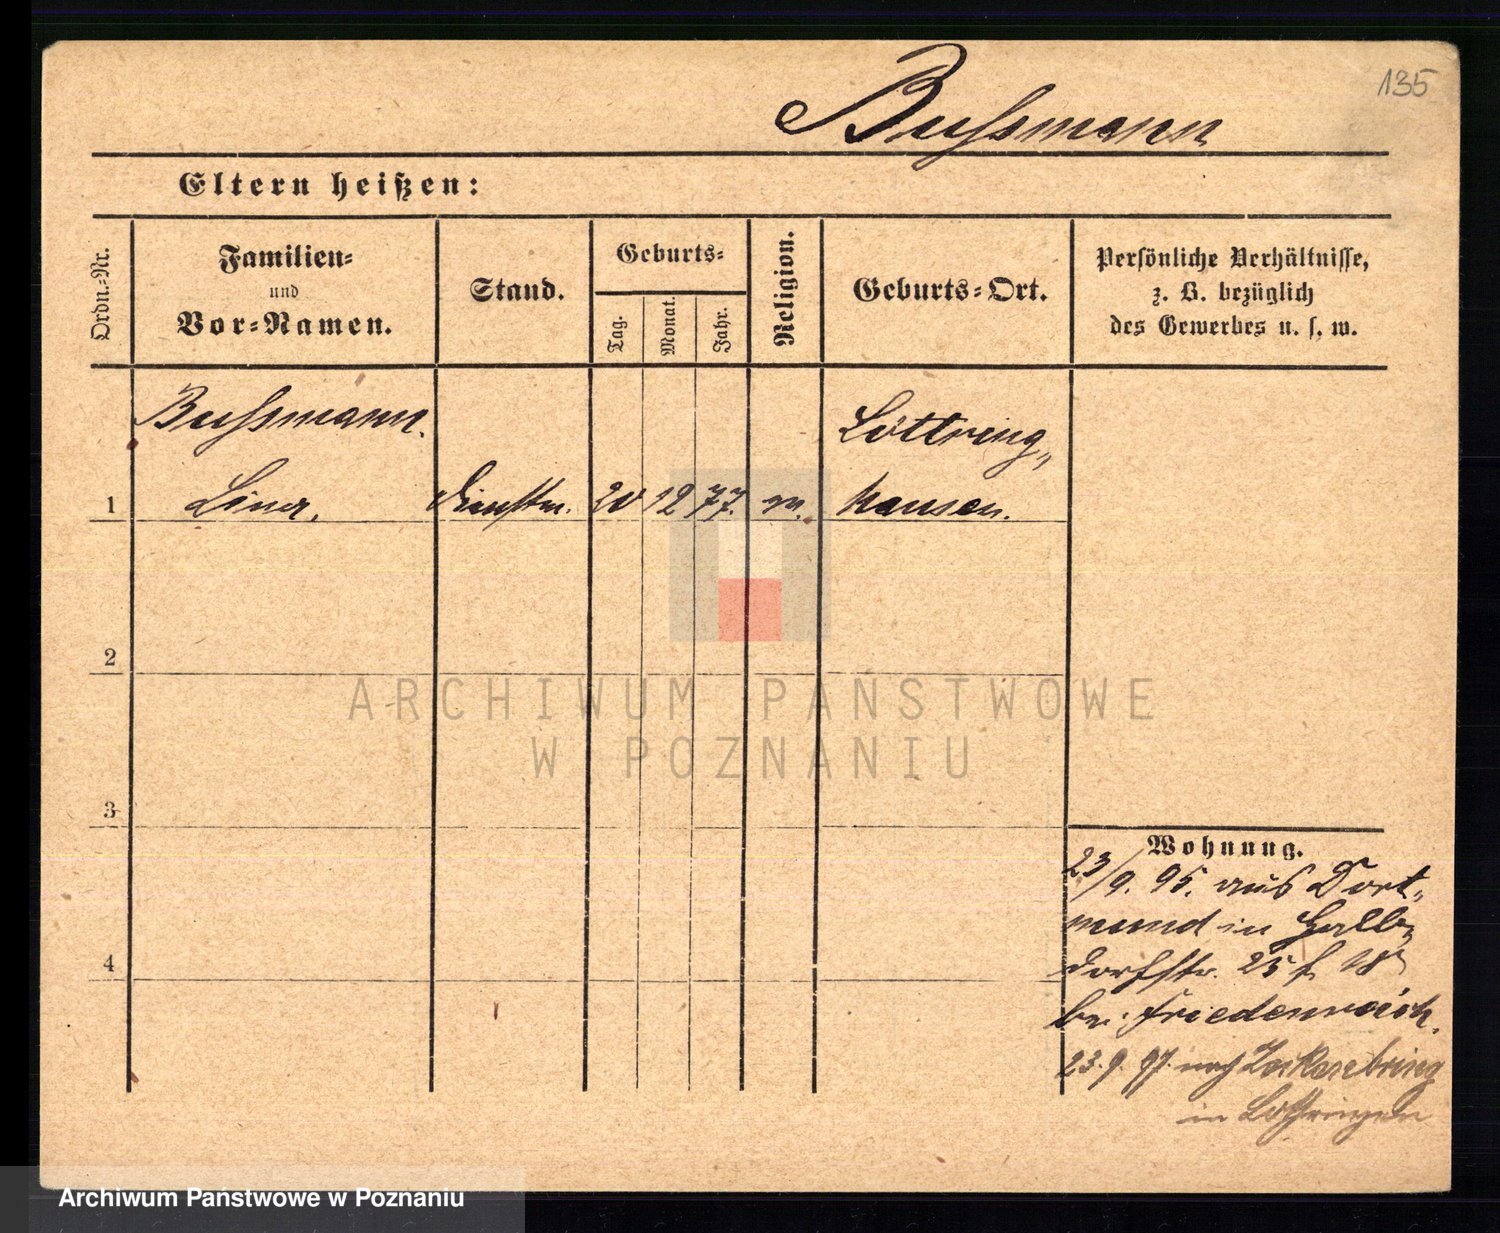 135
Bussmann
Eltern heißen:
Ordn.-Nr.
Familien-
und
Vor-Namen.
Stand.
Geburts-
Tag.
Monat.
Jahr.
Religion.
Geburts-Ort.
Persönliche Verhältnisse,
z. B. bezüglich
des Gewerbes u. s. w.
Bussmann.
Löttring-
1 Lina. Dienstm. 20 12 77. hausen.
2
ARCHIWUM PAŃSTWOWE
W POZNANIU
3
Wohnung.
23/9. 95. aus Dort-
mund in Halb-
dorfstr. 25
bei Friedenreich.
23.9.97. nach
in Lothringen
4
Archiwum Państwowe w Poznaniu